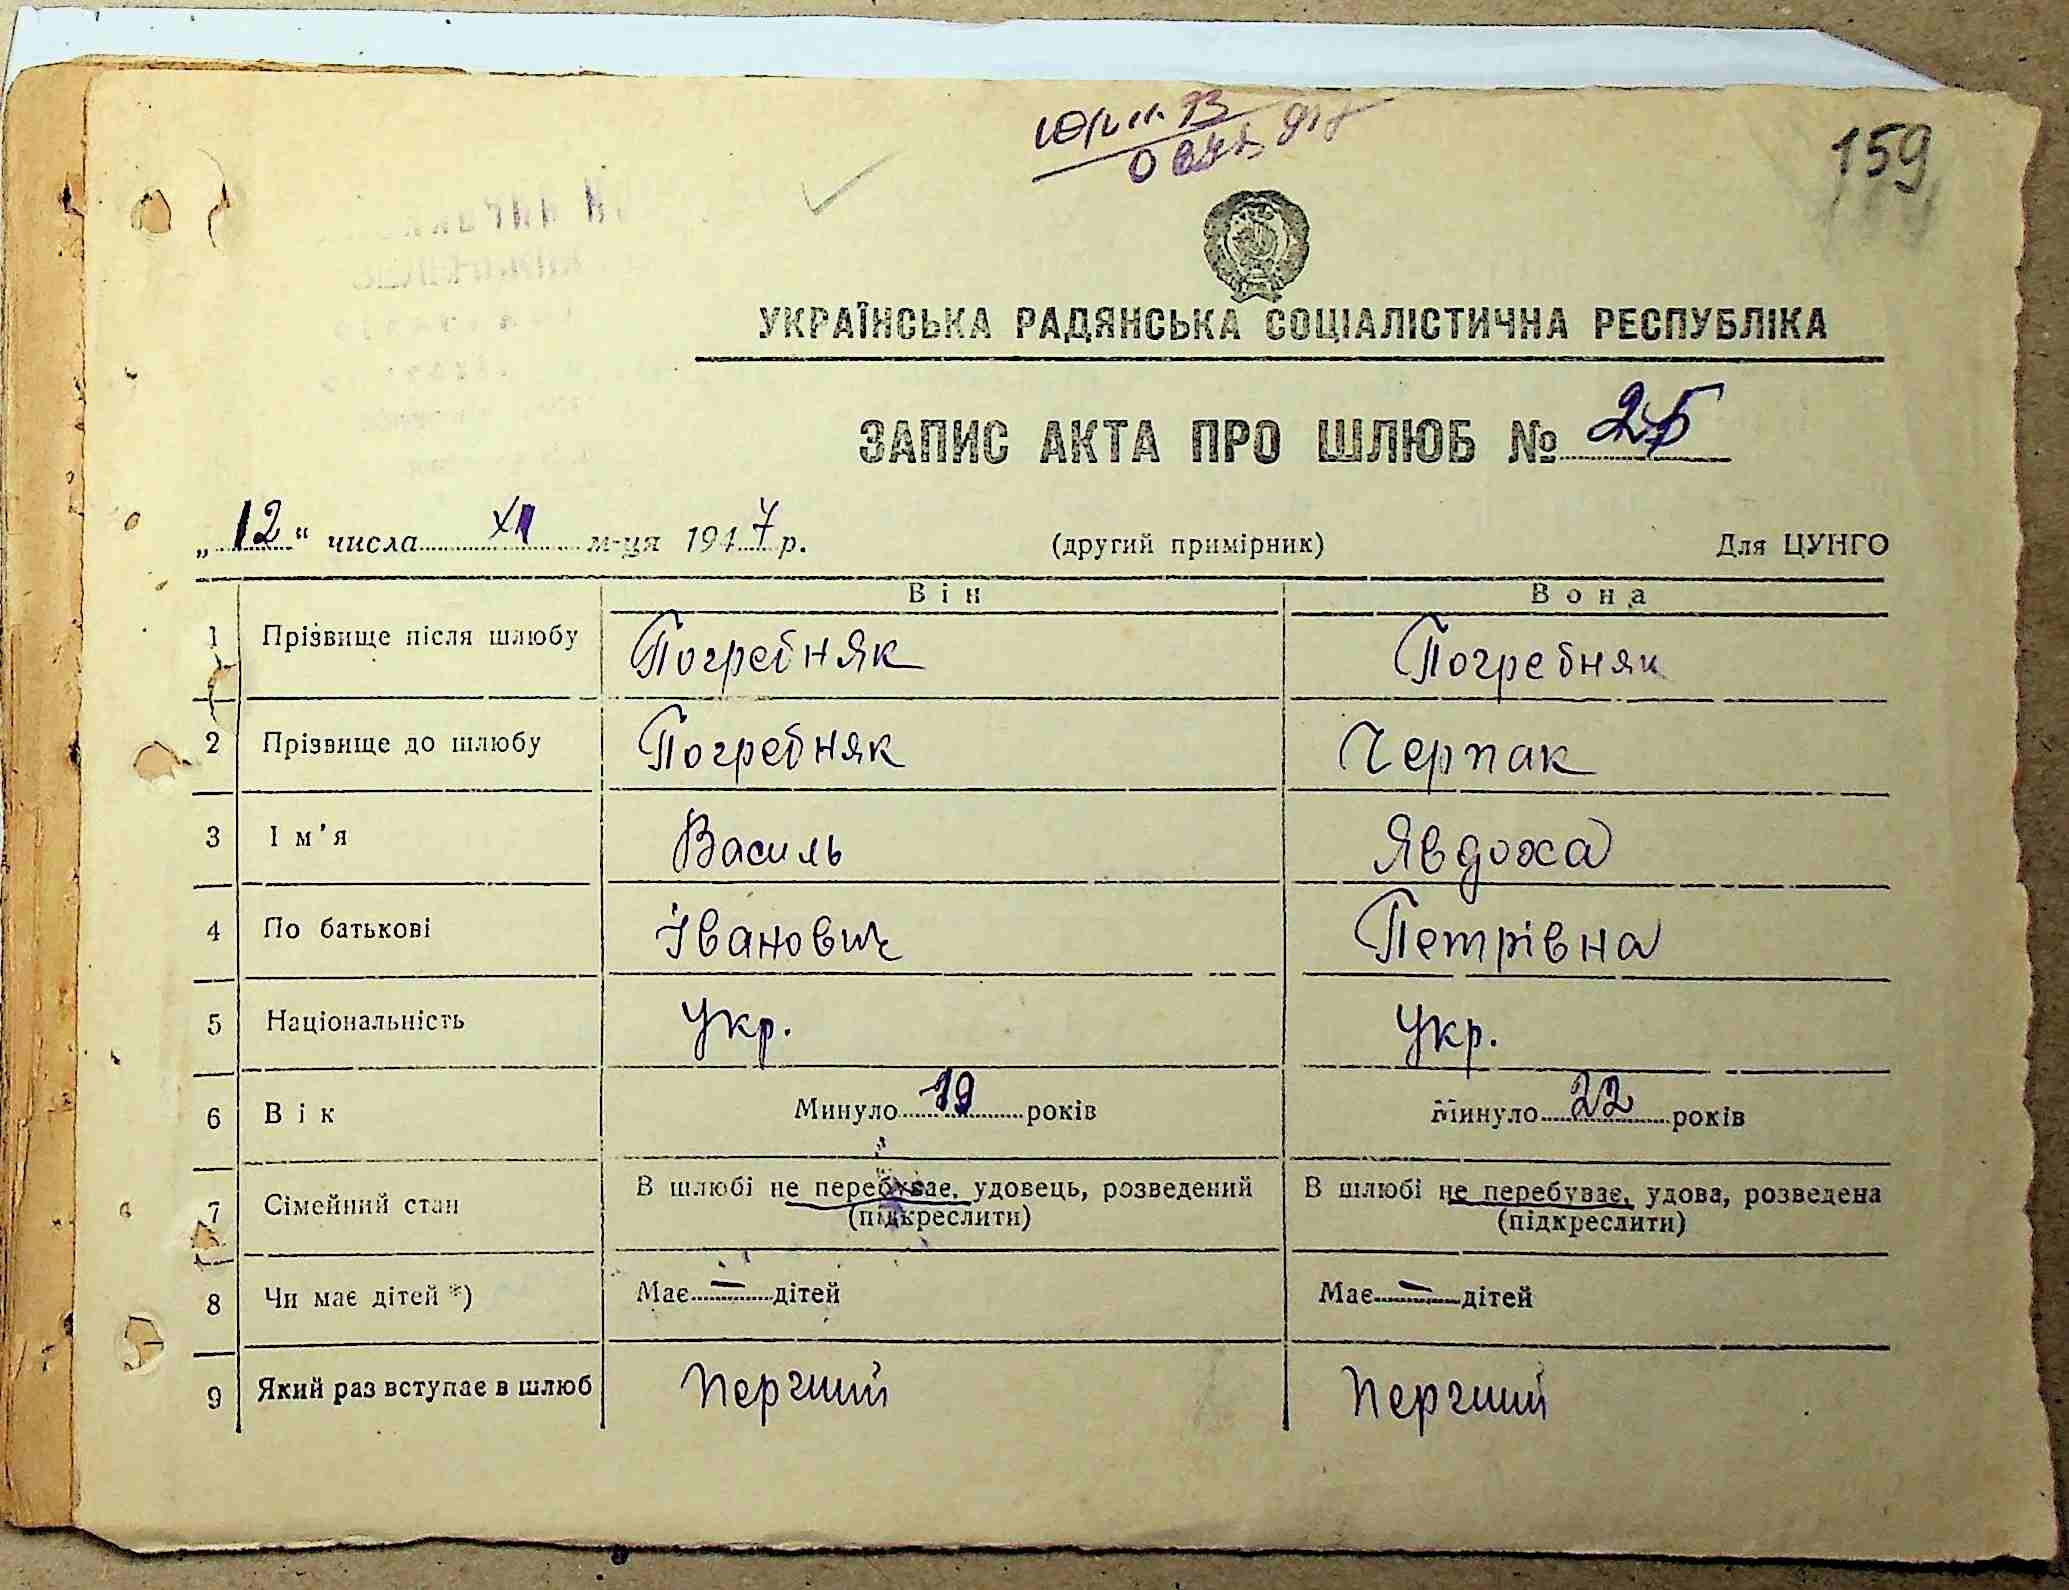 159
УКРАЇНСЬКА РАДЯНСЬКА СОЦІАЛІСТИЧНА РЕСПУБЛІКА
ЗАПИС АКТА ПРО ШЛЮБ № 25
„12“ числа XII м-ця 1947 р. (другий примірник) Для ЦУНГО
Він Вона
1 Прізвище після шлюбу Погребняк Погребняк
2 Прізвище до шлюбу Погребняк Черпак
3 Ім'я Василь Явдоха
4 По батькові Іванович Петрівна
5 Національність Укр. Укр.
6 Вік Минуло 19 років Минуло 22 років
7 Сімейний стан В шлюбі не перебуває, удовець, розведений В шлюбі не перебуває, удова, розведена
(підкреслити) (підкреслити)
8 Чи має дітей *) Має — дітей Має — дітей
9 Який раз вступає в шлюб Перший Перший